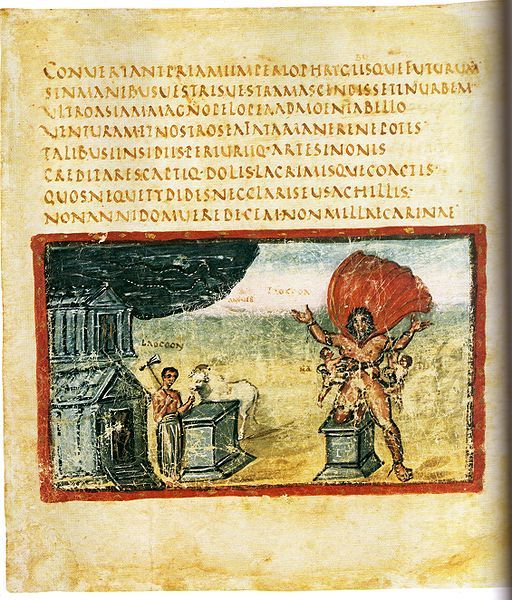 BU
CONVERTANTPRIAMIIMPERIOPHRYGIISQUEFUTURUM
SINMANIBUSUESTRISUESTRAMASCENDISSETINURBEM
ULTROASIAMMAGNOPELOPEAADMOENIABELLO
UENTURAMETNOSTROSEAFATAMANERENEPOTES
TALIBUSINSIDIIS·PERIURIIQ·ARTESINONIS
CREDITARES·CAPTIQ·DOLISLACRIMISQUECOACTIS
QUOSNEQUETYDIDESNECCLARISEUSACHILLIS·
NONANNIDOMUEREDECEMNONMILLECARINAE
LAOCOON
ANGUES
LAOCOON
NA